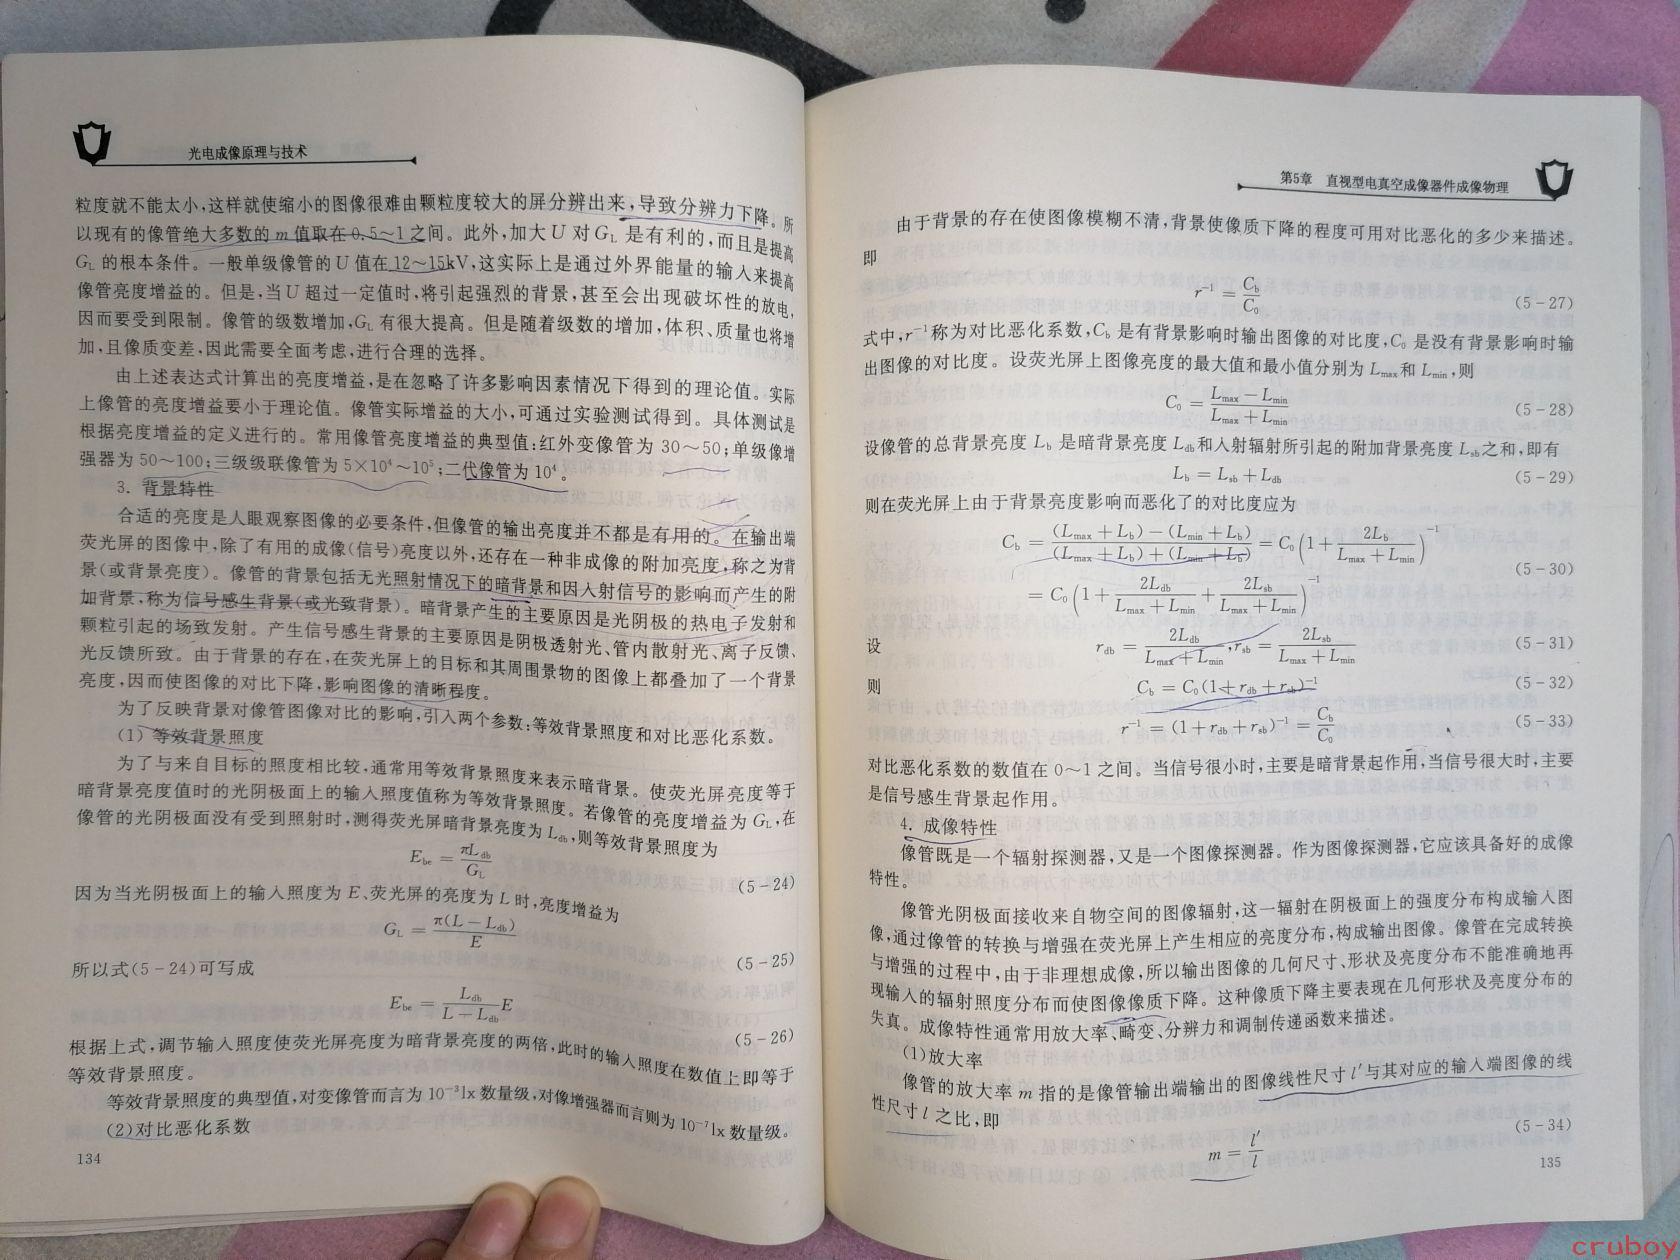 光电成像原理与技术
粒度就不能太小,这样就使缩小的图像很难由颗粒度较大的屏分辨出来,导致分辨力下降。所
以现有的像管绝大多数的 m 值取在 0.5～1 之间。此外,加大 U 对 G_L 是有利的,而且是提高
G_L 的根本条件。一般单级像管的 U 值在 12～15kV,这实际上是通过外界能量的输入来提高
像管亮度增益的。但是,当 U 超过一定值时,将引起强烈的背景,甚至会出现破坏性的放电,
因而要受到限制。像管的级数增加,G_L 有很大提高。但是随着级数的增加,体积、质量也将增
加,且像质变差,因此需要全面考虑,进行合理的选择。
由上述表达式计算出的亮度增益,是在忽略了许多影响因素情况下得到的理论值。实际
上像管的亮度增益要小于理论值。像管实际增益的大小,可通过实验测试得到。具体测试是
根据亮度增益的定义进行的。常用像管亮度增益的典型值:红外变像管为 30～50;单级像增
强器为 50～100;三级级联像管为 5×10⁴～10⁵;二代像管为 10⁴。
3. 背景特性
合适的亮度是人眼观察图像的必要条件,但像管的输出亮度并不都是有用的。在输出端
荧光屏的图像中,除了有用的成像(信号)亮度以外,还存在一种非成像的附加亮度,称之为背
景(或背景亮度)。像管的背景包括无光照射情况下的暗背景和因入射信号的影响而产生的附
加背景,称为信号感生背景(或光致背景)。暗背景产生的主要原因是光阴极的热电子发射和
颗粒引起的场致发射。产生信号感生背景的主要原因是阴极透射光、管内散射光、离子反馈、
光反馈所致。由于背景的存在,在荧光屏上的目标和其周围景物的图像上都叠加了一个背景
亮度,因而使图像的对比下降,影响图像的清晰程度。
为了反映背景对像管图像对比的影响,引入两个参数:等效背景照度和对比恶化系数。
(1) 等效背景照度
为了与来自目标的照度相比较,通常用等效背景照度来表示暗背景。使荧光屏亮度等于
暗背景亮度值时的光阴极面上的输入照度值称为等效背景照度。若像管的亮度增益为 G_L,在
像管的光阴极面没有受到照射时,测得荧光屏暗背景亮度为 L_db,则等效背景照度为
E_be = πL_db / G_L (5-24)
因为当光阴极面上的输入照度为 E、荧光屏的亮度为 L 时,亮度增益为
G_L = π(L − L_db) / E (5-25)
所以式(5-24)可写成
E_be = L_db / (L − L_db) E (5-26)
根据上式,调节输入照度使荧光屏亮度为暗背景亮度的两倍,此时的输入照度在数值上即等于
等效背景照度。
等效背景照度的典型值,对变像管而言为 10⁻³lx 数量级,对像增强器而言则为 10⁻⁷lx 数量级。
(2)对比恶化系数
134
第5章 直视型电真空成像器件成像物理
由于背景的存在使图像模糊不清,背景使像质下降的程度可用对比恶化的多少来描述。
即
r⁻¹ = C_b / C_0 (5-27)
式中,r⁻¹称为对比恶化系数,C_b 是有背景影响时输出图像的对比度,C_0 是没有背景影响时输
出图像的对比度。设荧光屏上图像亮度的最大值和最小值分别为 L_max 和 L_min,则
C_0 = (L_max − L_min) / (L_max + L_min) (5-28)
设像管的总背景亮度 L_b 是暗背景亮度 L_db 和入射辐射所引起的附加背景亮度 L_sb 之和,即有
L_b = L_sb + L_db (5-29)
则在荧光屏上由于背景亮度影响而恶化了的对比度应为
C_b = ((L_max + L_b) − (L_min + L_b)) / ((L_max + L_b) + (L_min + L_b)) = C_0 (1 + 2L_b / (L_max + L_min))⁻¹
= C_0 (1 + 2L_db / (L_max + L_min) + 2L_sb / (L_max + L_min))⁻¹ (5-30)
设 r_db = 2L_db / (L_max + L_min), r_sb = 2L_sb / (L_max + L_min) (5-31)
则 C_b = C_0(1 + r_db + r_sb)⁻¹ (5-32)
r⁻¹ = (1 + r_db + r_sb)⁻¹ = C_b / C_0 (5-33)
对比恶化系数的数值在 0～1 之间。当信号很小时,主要是暗背景起作用,当信号很大时,主要
是信号感生背景起作用。
4. 成像特性
像管既是一个辐射探测器,又是一个图像探测器。作为图像探测器,它应该具备好的成像
特性。
像管光阴极面接收来自物空间的图像辐射,这一辐射在阴极面上的强度分布构成输入图
像,通过像管的转换与增强在荧光屏上产生相应的亮度分布,构成输出图像。像管在完成转换
与增强的过程中,由于非理想成像,所以输出图像的几何尺寸、形状及亮度分布不能准确地再
现输入的辐射照度分布而使图像像质下降。这种像质下降主要表现在几何形状及亮度分布的
失真。成像特性通常用放大率、畸变、分辨力和调制传递函数来描述。
(1)放大率
像管的放大率 m 指的是像管输出端输出的图像线性尺寸 l′与其对应的输入端图像的线
性尺寸 l 之比,即
m = l′ / l (5-34)
135
cruboy